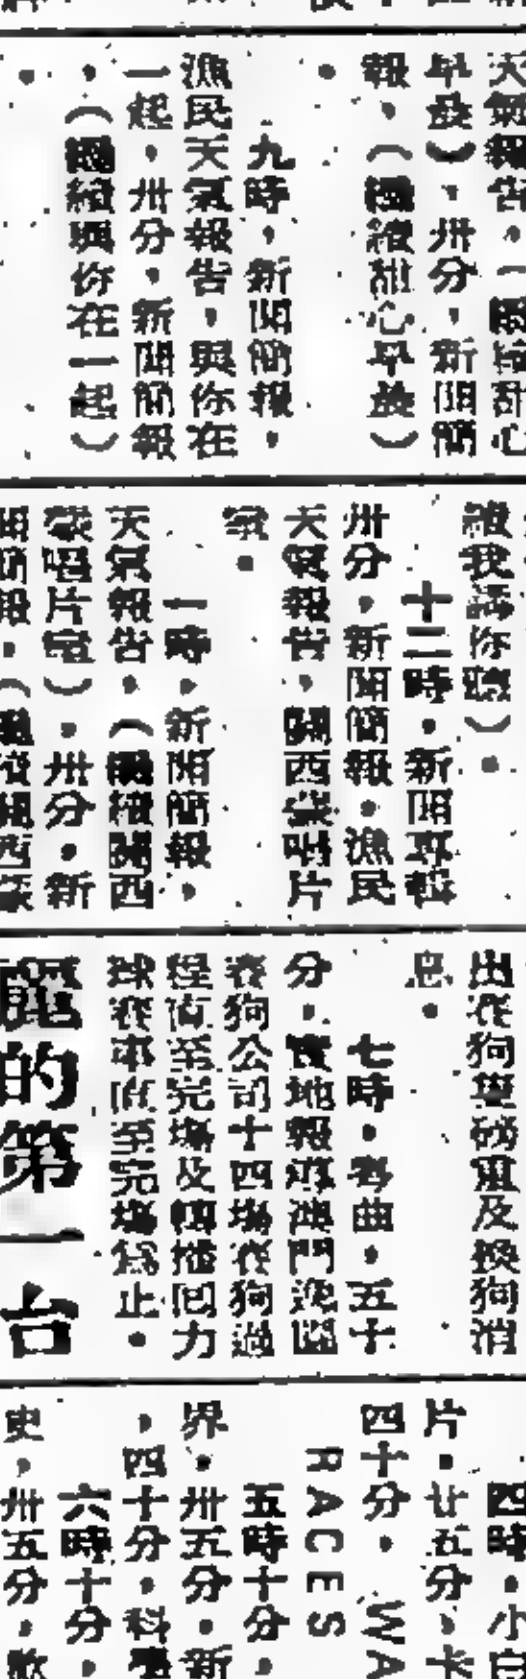 天氣報告。(國續甜心
早晨)、卅分,新聞簡
報、(國續甜心早晨)
。
九時,新聞簡報,
漁民天氣報告,與你在
一起,卅分,新聞簡報
,(國續與你在一起)
。
續我話你聽)。
十二時。新聞專輯
卅分,新聞簡報。漁民
天氣報告,關西歌唱片
室。
一時。新聞簡報,
天氣報告。(國續關西
歌唱片室)。卅分。新
聞簡報。(國續關西歌
出賽狗隻磅重及換狗消
息。
七時。粵曲。五十
分。實地報導澳門逸園
賽狗公司十四場賽狗過
程直至完場及轉播回力
球賽事直至完場為止。
麗的第一台
四時。小白
片。廿五分、卡
四十分。WA
RACES
五時十分。
界。卅五分。新
,四十分。科學
六時十分。
史,卅五分。歌